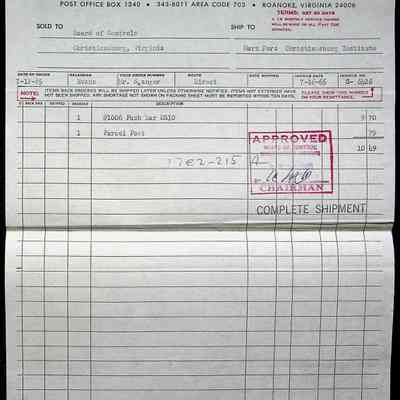 POST OFFICE BOX 1340 • 343-8011 AREA CODE 703 • ROANOKE, VIRGINIA 24008
TERMS: NET 30 DAYS
SOLD TO
SHIP TO
Board of Controls
Christiansburg, Virginia
Christiansburg Institute
DATE OF ORDER SALESMAN YOUR ORDER NUMBER ROUTE DATE SHIPPED INVOICE DATE INVOICE NO.
Evans Direct
NOTE: ITEMS BACK ORDERED WILL BE SHIPPED LATER UNLESS OTHERWISE NOTIFIED. ITEMS NOT EXTENDED HAVE NOT BEEN SHIPPED. ANY SHORTAGE NOT SHOWN ON PACKING SHEET MUST BE REPORTED WITHIN TEN DAYS.
PLEASE SHOW THIS NUMBER ON YOUR REMITTANCE.
DESCRIPTION
1 Push Bar 9 70
1 Parcel Post 79
10 49
APPROVED
CHAIRMAN
COMPLETE SHIPMENT